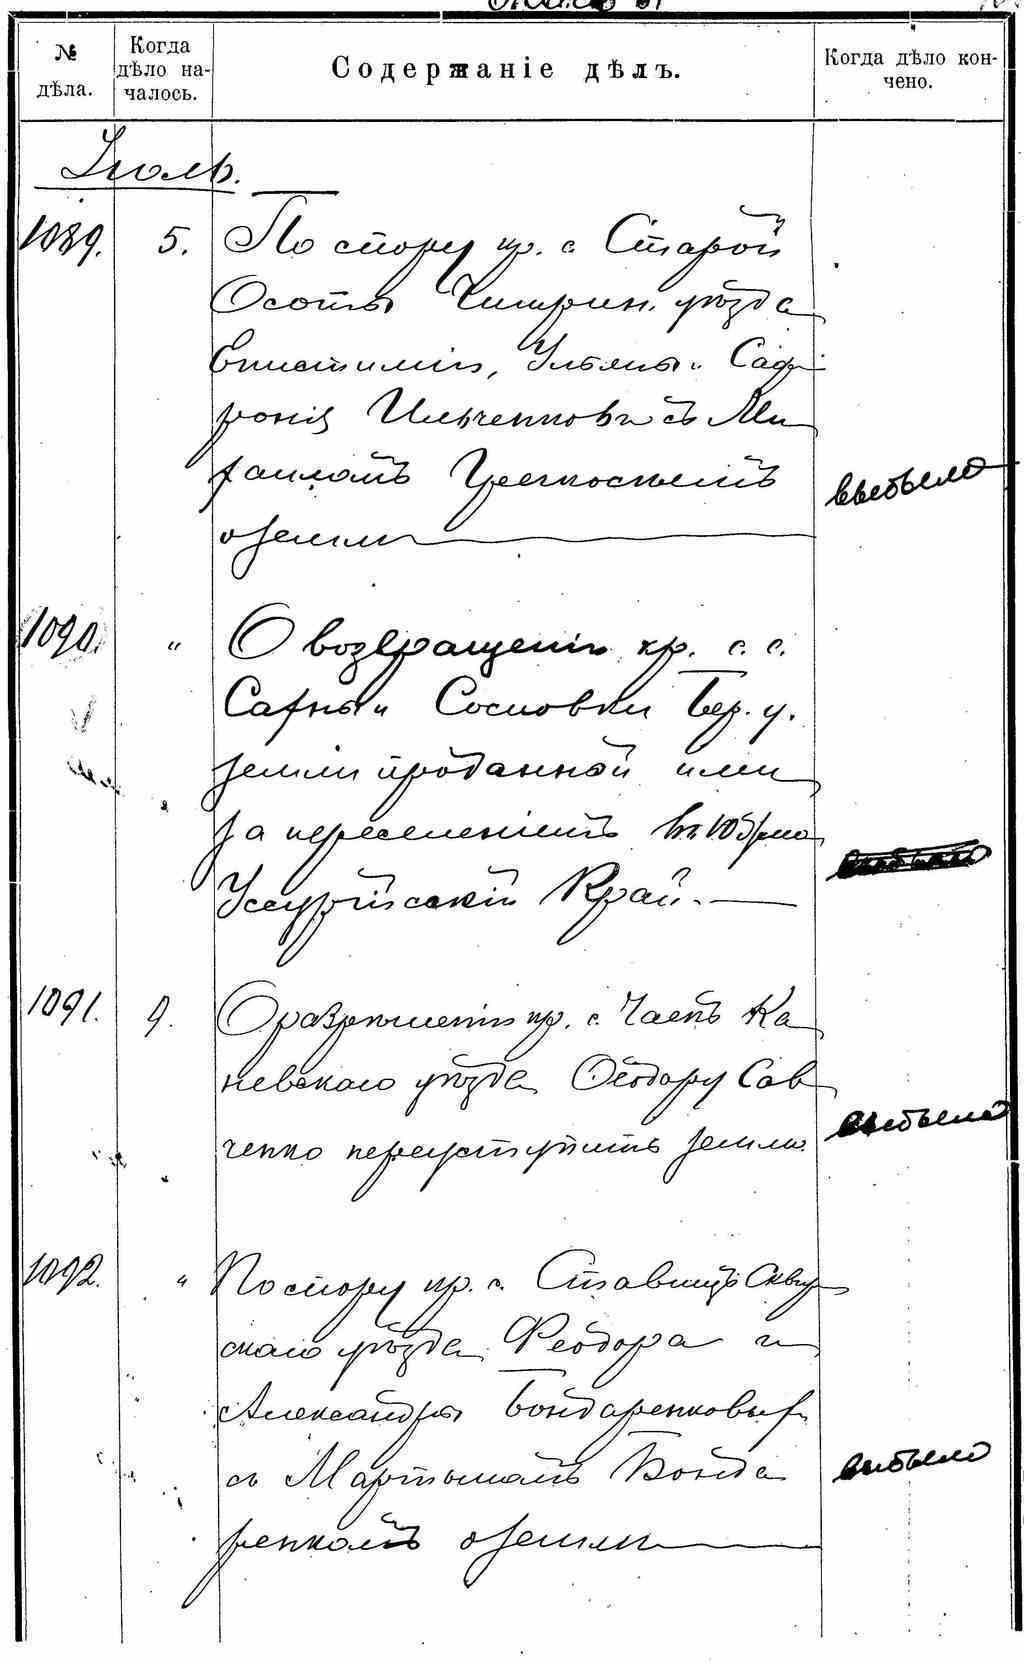 № дѣла.
Когда дѣло на-
чалось.
Содержаніе дѣлъ.
Когда дѣло кон-
чено.
Іюль.
1089. 5. По спору кр. с. Старой
Осоты Чигирин. уѣзда
Епистиміи, Ульяны и Саф
ронія Ильченковъ съ Ми
хаиломъ
о земли
выбыло
1090. " О возвращеніи кр. с. с.
Сахны и Сосновки Бер. у.
земли проданной ими
за переселеніемъ въ Южно
Уссурійскій Край.
1091. 9. О разрѣшеніи кр. с. Ка
невскаго уѣзда Ѳеодору Сав
ченко переуступить землю.
выбыло
1092. " По спору кр. с. Ставищъ Сквир
скаго уѣзда Феодора и
Александры Бондаренковых
съ Мартыномъ Бонда
ренкомъ о земли
выбыло